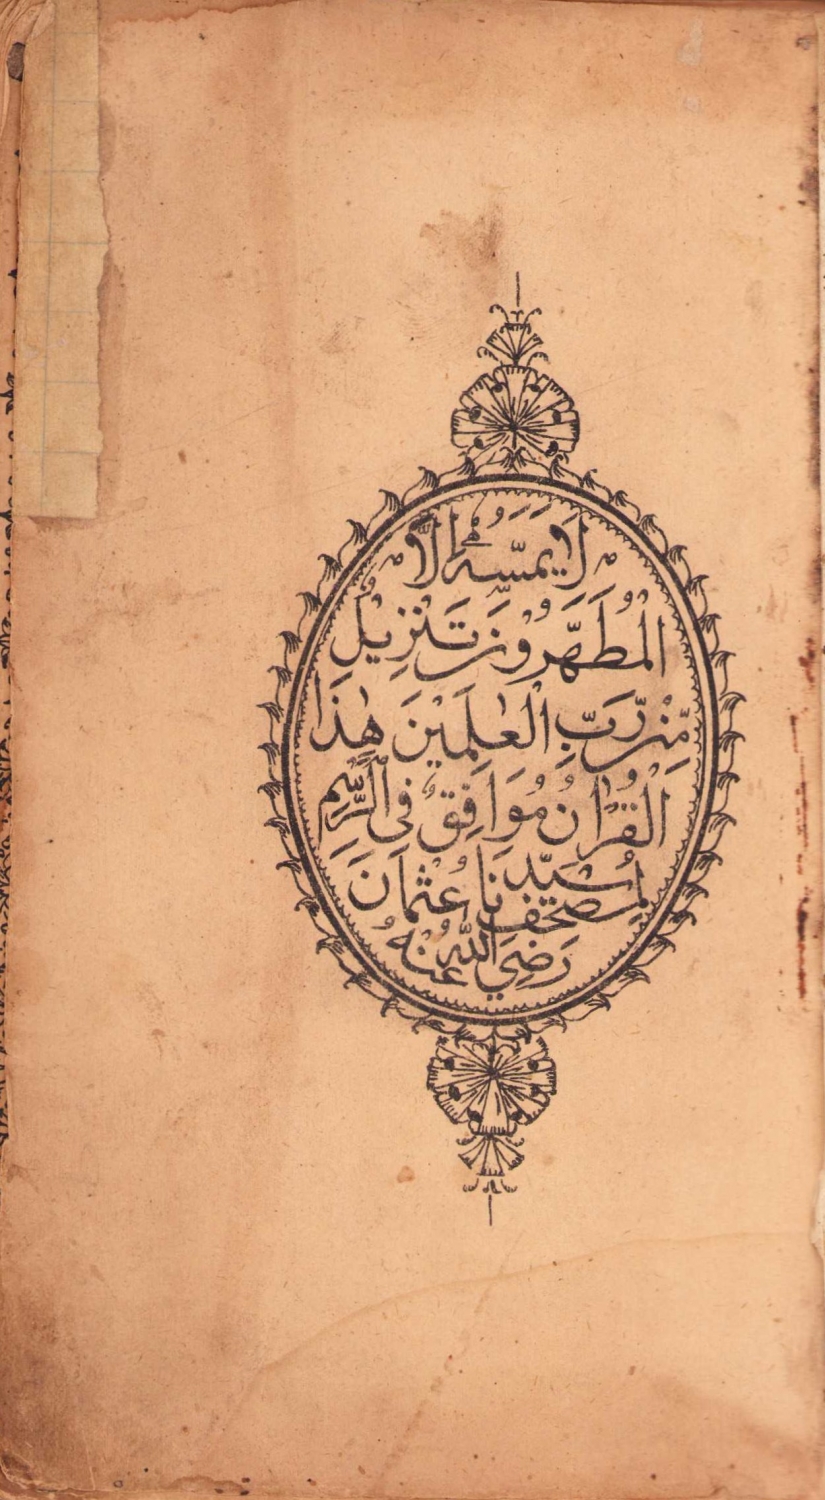 لَا يَمَسُّهُ إِلَّا
الْمُطَهَّرُونَ تَنْزِيْلٌ
مِّنْ رَّبِّ الْعٰلَمِيْنَ هٰذَا
الْقُرْاٰنُ مُوَافِقٌ فِى الرَّسْمِ
لِمُصْحَفِ سَيِّدِنَا عُثْمَانَ
رَضِيَ اللّٰهُ عَنْهُ